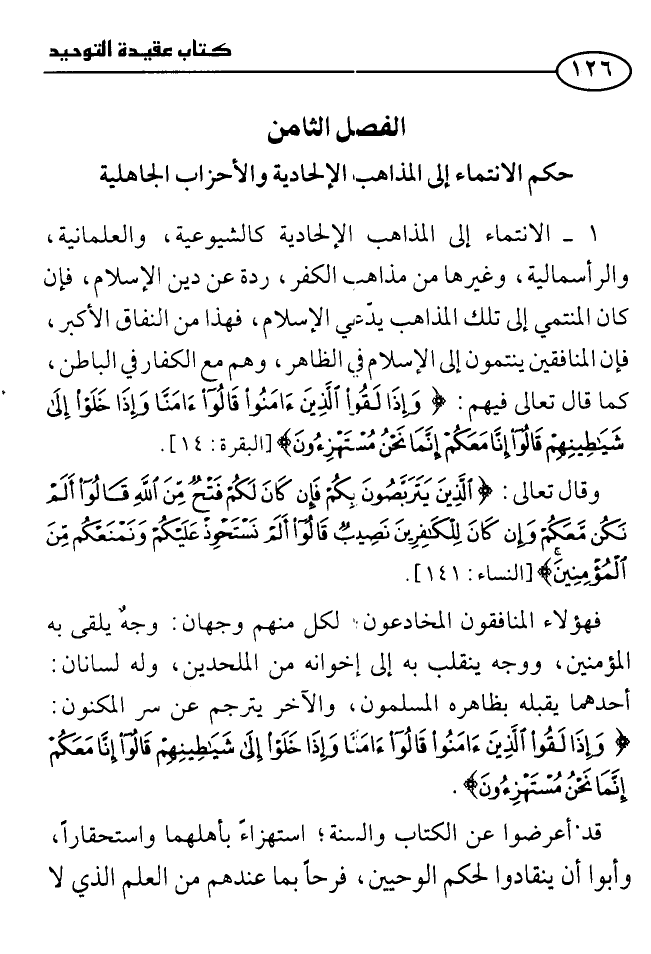 كتاب عقيدة التوحيد
١٢٦
الفصل الثامن
حكم الانتماء إلى المذاهب الإلحادية والأحزاب الجاهلية
١ ـ الانتماء إلى المذاهب الإلحادية كالشيوعية، والعلمانية،
والرأسمالية، وغيرها من مذاهب الكفر، ردة عن دين الإسلام، فإن
كان المنتمي إلى تلك المذاهب يدّعي الإسلام، فهذا من النفاق الأكبر،
فإن المنافقين ينتمون إلى الإسلام في الظاهر، وهم مع الكفار في الباطن،
كما قال تعالى فيهم: ﴿ وَإِذَا لَقُوا۟ ٱلَّذِينَ ءَامَنُوا۟ قَالُوٓا۟ ءَامَنَّا وَإِذَا خَلَوْا۟ إِلَىٰ
شَيَـٰطِينِهِمْ قَالُوٓا۟ إِنَّا مَعَكُمْ إِنَّمَا نَحْنُ مُسْتَهْزِءُونَ﴾ [البقرة: ١٤].
وقال تعالى: ﴿ ٱلَّذِينَ يَتَرَبَّصُونَ بِكُمْ فَإِن كَانَ لَكُمْ فَتْحٌ مِّنَ ٱللَّهِ قَـالُوٓا۟ أَلَمْ
نَكُن مَّعَكُمْ وَإِن كَانَ لِلْكَـٰفِرِينَ نَصِيبٌ قَالُوٓا۟ أَلَمْ نَسْتَحْوِذْ عَلَيْكُمْ وَنَمْنَعْكُم مِّنَ
ٱلْمُؤْمِنِينَۚ﴾ [النساء: ١٤١].
فهؤلاء المنافقون المخادعون؛ لكل منهم وجهان: وجهٌ يلقى به
المؤمنين، ووجه ينقلب به إلى إخوانه من الملحدين، وله لسانان:
أحدهما يقبله بظاهره المسلمون، والآخر يترجم عن سر المكنون:
﴿ وَإِذَا لَقُوا۟ ٱلَّذِينَ ءَامَنُوا۟ قَالُوٓا۟ ءَامَنَّا وَإِذَا خَلَوْا۟ إِلَىٰ شَيَـٰطِينِهِمْ قَالُوٓا۟ إِنَّا مَعَكُمْ
إِنَّمَا نَحْنُ مُسْتَهْزِءُونَ﴾ .
قد أعرضوا عن الكتاب والسنة؛ استهزاءً بأهلهما واستحقاراً،
وأبوا أن ينقادوا لحكم الوحيين، فرحاً بما عندهم من العلم الذي لا